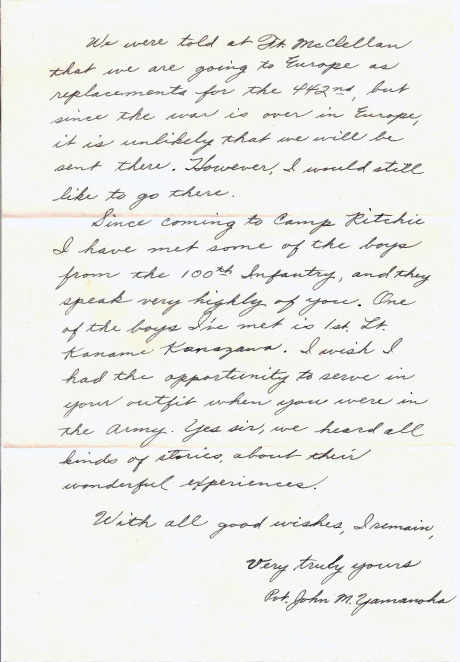 We were told at Ft. McClellan
that we are going to Europe as
replacements for the 442nd, but
since the war is over in Europe,
it is unlikely that we will be
sent there. However, I would still
like to go there.
Since coming to Camp Ritchie
I have met some of the boys
from the 100th Infantry, and they
speak very highly of you. One
of the boys I've met is 1st. Lt.
Kaname Kanazawa. I wish I
had the opportunity to serve in
your outfit when you were in
the Army. Yes sir, we heard all
kinds of stories, about their
wonderful experiences.
With all good wishes, I remain,
Very truly yours
Pvt. John M. Yamanoha